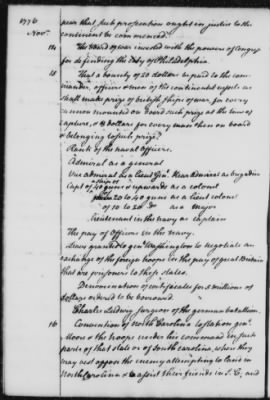 1776 pear that such prosecution ought in justice to the
Nov. continent be commenced.
The board of war invested with the powers of Congress
for defending the City of Philadelphia.
15 That a bounty of 20 dollars be paid to the com-
mander, officers & men of the continental vessels as
shall make prize of british ships of war for every
cannon mounted on board such prize at the time of
capture, & 8 dollars for every man then on board
& belonging to such prize.
Rank of the naval Officers.
Admiral as a general
Vice admiral as a lieut Genl. Rear Admiral as brigadier
Capt of ships of 40 guns & upwards as a colonel
20 to 40 guns as a lieut colonel
of 10 to 20 do as Major
Lieutenant in the navy as captain
The pay of Officers in the navy.
Leave granted to genl Washington to negotiate an
exchange of the foreign troops in the pay of great Britain
that are prisoners to these states.
Denomination of certificates for 5 millions of
dollars ordered to be borrowed
Charles Ledwig surgeon of the german battalion.
16 Convention of north Carolina to station genl.
Moore & the troops under his command in such
parts of that state or of South carolina, when they
may best oppose the enemy attempting to land in
North Carolina & to assist their friends in S.C, and